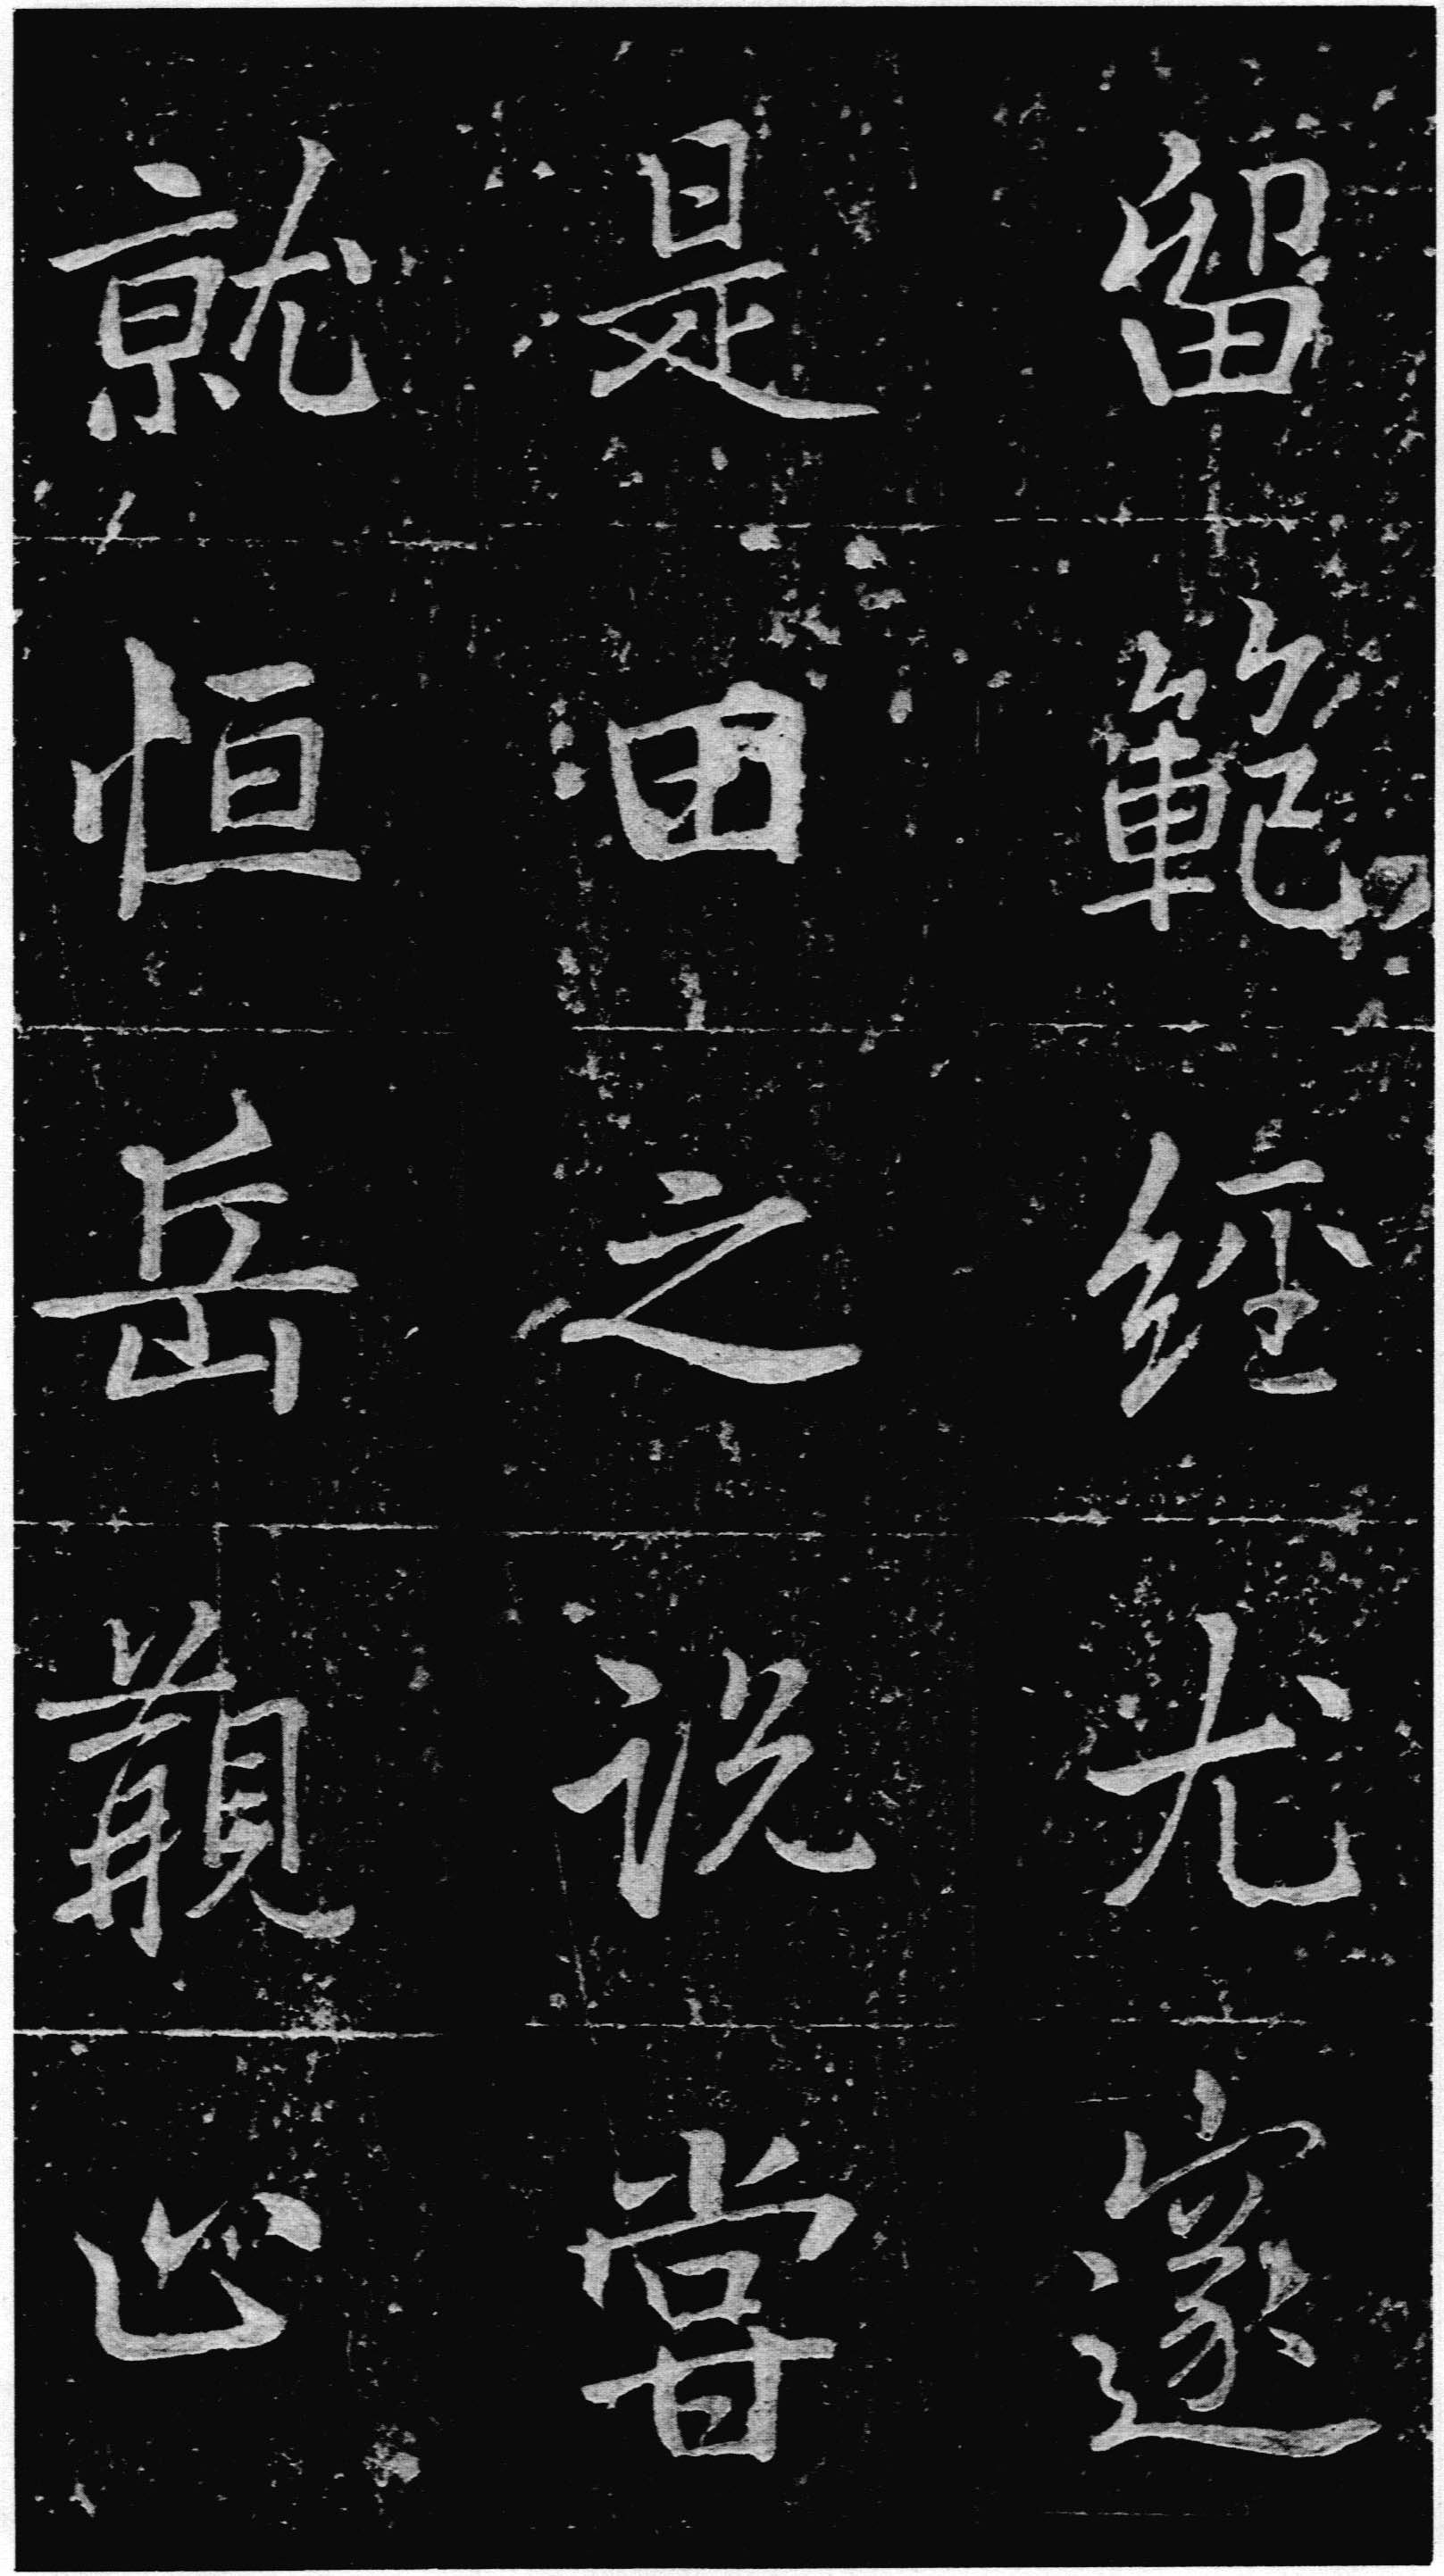 留範經尤邃
是田之説嘗
就恒岳覯止